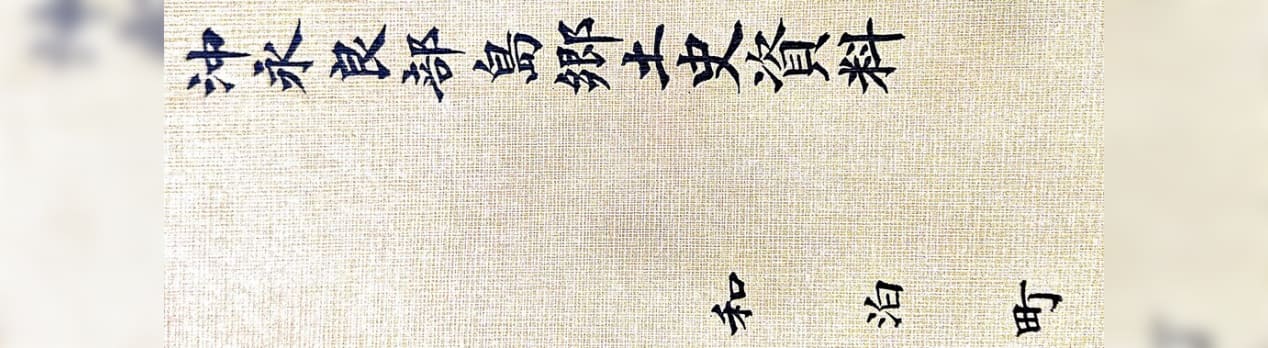 沖永良部島郷土史資料
和泊町